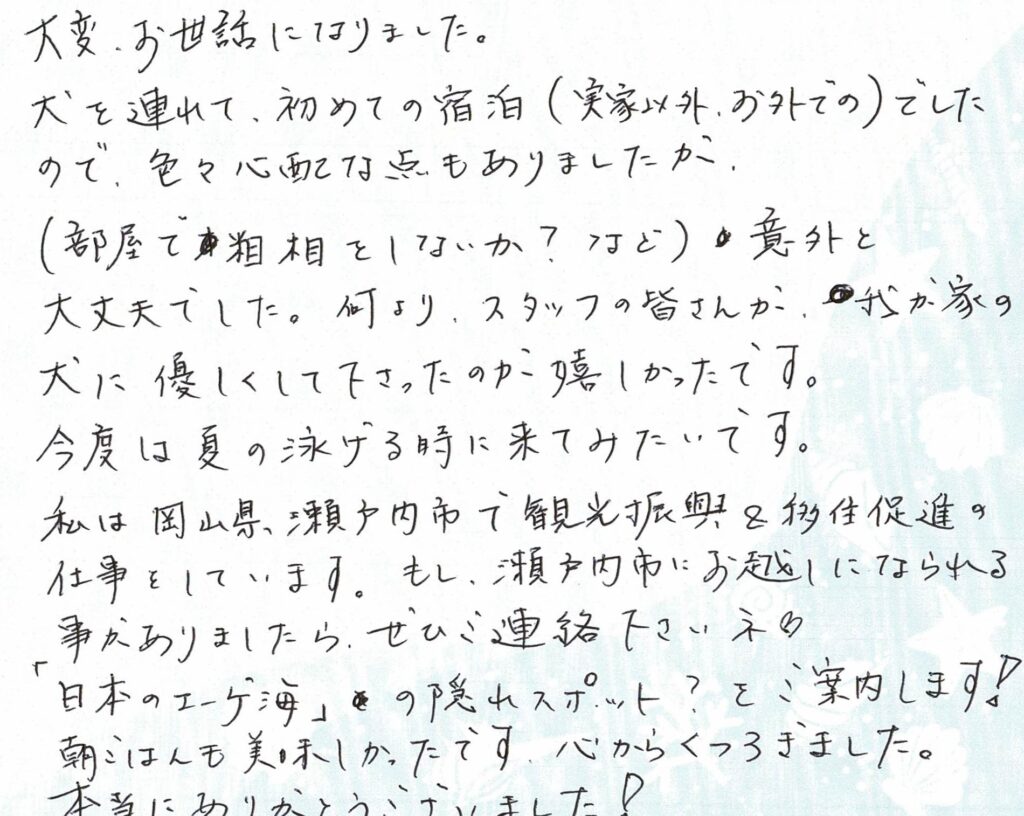 大変、お世話になりました。
犬を連れて、初めての宿泊(実家以外、お外での)でした
ので、色々心配な点もありましたが、
(部屋で粗相をしないか?など)意外と
大丈夫でした。何より、スタッフの皆さんが、我が家の
犬に優しくして下さったのが嬉しかったです。
今度は夏の泳げる時に来てみたいです。
私は岡山県、瀬戸内市で観光振興&移住促進の
仕事をしています。もし、瀬戸内市にお越しになられる
事がありましたら、ぜひご連絡下さいネ♡
「日本のエーゲ海」の隠れスポット?をご案内します!
朝ごはんも美味しかったです、心からくつろぎました。
本当にありがとうございました!